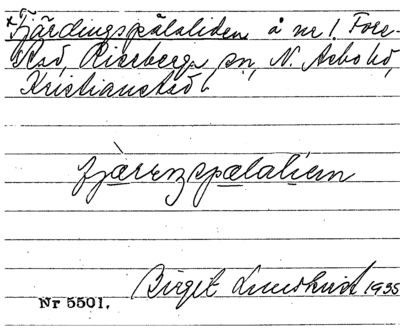 *Fjärdingspålaliden å nr 1. Fore-
stad, Riseberga sn, N. Åsbo hd,
Kristianstad l.
fjæreŋspålalien
Birgit Lundkvist 1935
Nr 5501.